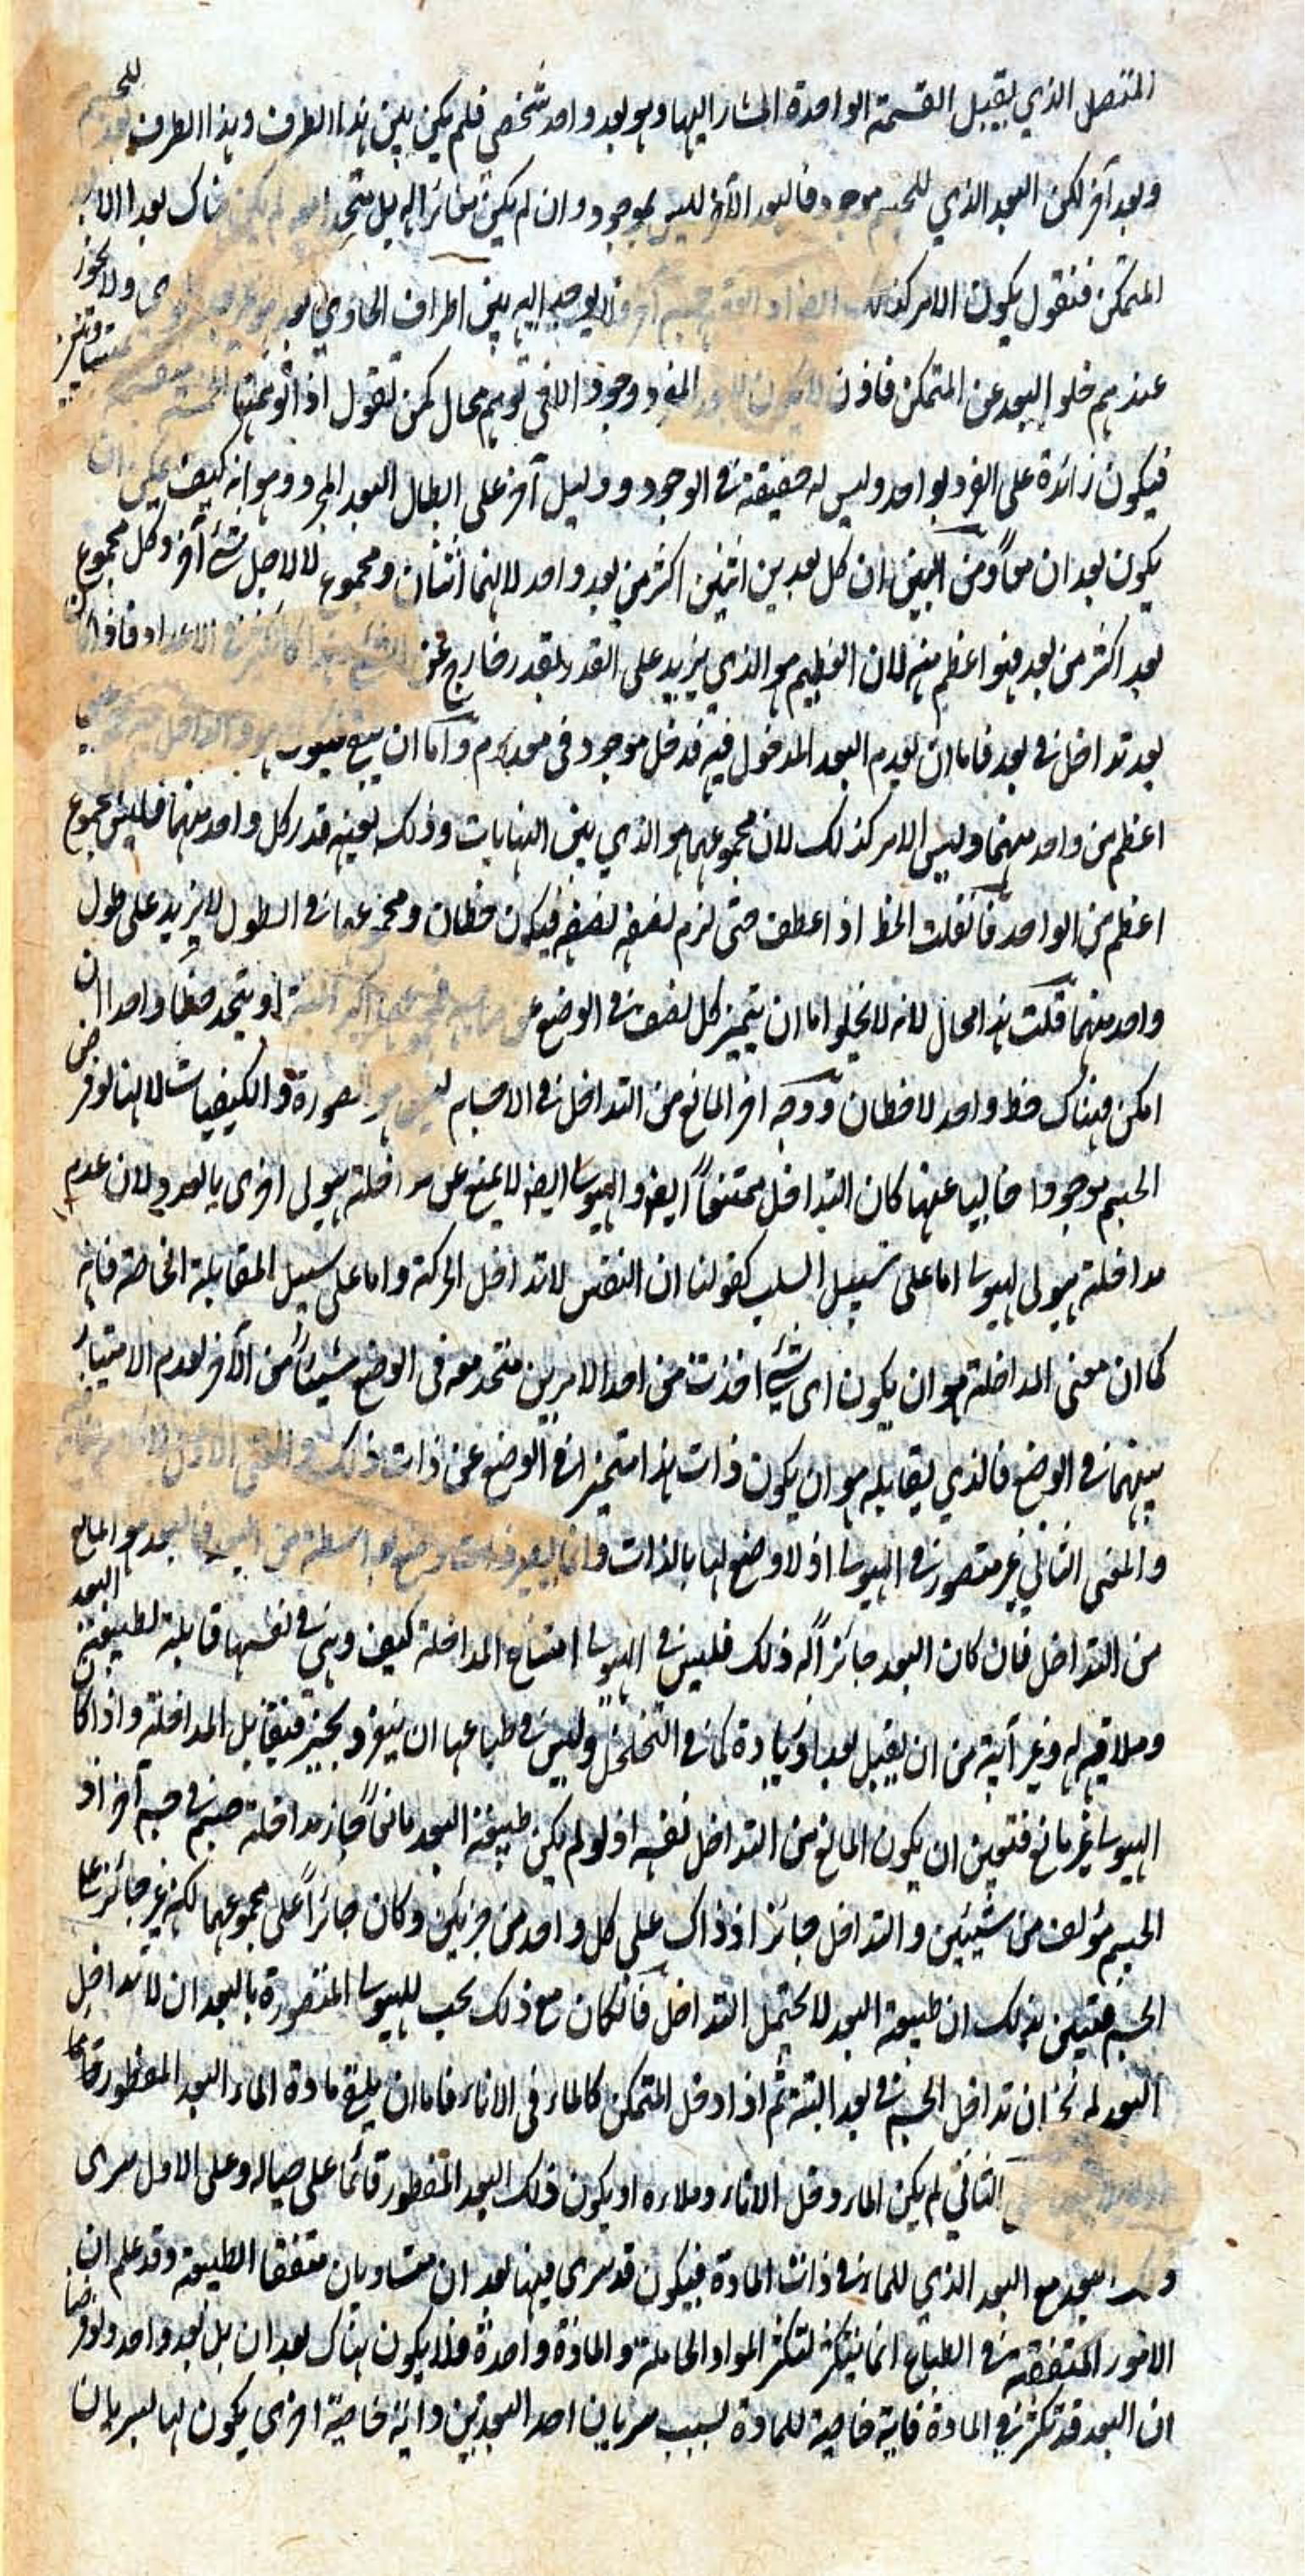 المتصل الذي يقبل القسمة الواحدة المشار اليها وهو بعد واحد شخصي فلم يكن بين هذا الطرف وهذا الطرف بعد للجسم
وبعد آخر لكن البعد الذي للجسم موجود فالبعد الآخر ليس بموجود وان لم يكن مغائرا له بل يتحد معه لم يكن هناك بعد الا
المتمكن فنقول يكون الامر كذلك ايضا جسم آخر فلا يوجد البتة بين اطراف الحاوي بعد ولا يجوز
عندهم خلو البعد عن المتمكن فاذن لا يكون للبعد المفرد وجود الا في توهم محال كمن تقول اذا توهمتها الخمسة منقسمة بمتساويين
فيكون زائدة على الفرد بواحد وليس له حقيقة في الوجود ودليل آخر على ابطال البعد المجرد وهو انه كيف يمكن ان
يكون بعدان معاً ومن البين ان كل بعدين اثنين اكثر من بعد واحد لانهما اثنان ومجموع لا لاجل شئ آخر وكل مجموع
بعد اكثر من بعد فهو اعظم منه لان العظيم هو الذي يزيد على القدر بقدر خارج عن الاعداد فاذا كان
بعد تداخل في بعد فاما ان يعدم البعد المدخول فيه فدخل موجود في معدوم واما ان يبقى فيكون
اعظم من واحد منهما وليس الامر كذلك لان مجموعهما هو الذي بين النهايات وذلك بعينه قدر كل واحد منهما فليس مجموع
اعظم من الواحد فان قلت الخط اذ اعطف حتى لزم نصفه نصفه فيكون خطان ومجموعهما في الطول لا يزيد على طول
واحد منهما قلت هذا محال لانه لا يخلو اما ان يتميز كل نصف في الوضع عن صاحبه او يتحد خطا واحدا ان
امكن فهناك خط واحد لا خطان ووجه اخر المانع من التداخل في الاجسام ليس هو الصورة والكيفيات لانها لو فرض
الجسم موجودا خاليا عنها كان التداخل ممتنعاً ايضا والهيولى ايضا لا يمنع عن مداخلة هيولى اخرى بالعدد ولان عدم
مداخلة هيولى لهيولى اما على سبيل السلب كقولنا ان النفس لا تداخل الحركة واما على سبيل المقابلة الخاصة فانه
كما ان معنى المداخلة هو ان يكون اي شئ اخذت من احد الامرين متحد معه في الوضع شيئاً من الآخر لعدم الامتياز
بينهما في الوضع فالذي يقابله هو ان يكون ذات هذا متميزا في الوضع عن ذات ذلك والمعنى الاول
والمعنى الثاني غير متصور في الهيولى اذ لا وضع لها بالذات وانما يصير ذات وضع بواسطة من البعد فالبعد هو المانع
من التداخل فان كان البعد جائزا له ذلك فليس في الهيولى امتناع المداخلة كيف وهي في نفسها قابلة لطبيعة البعد
وملاقية له وغير آبية من ان يقبل بعدا زيادة كما في التخلخل وليس في طباعها ان ينفرد بحيز فيقابل المداخلة واذا كان
الهيولى غير مانع فتعين ان يكون المانع من التداخل نفسه اذ لو لم يكن طبيعة البعد مانعاً جاز مداخلة جسم في جسم آخر اذ
الجسم مؤلف من شيئين والتداخل جائزا اذ ذاك على كل واحد من جزئين وكان جائزاً على مجموعهما لكنه غير جائز على
الجسم فتعين بذلك ان طبيعة البعد لا يحتمل التداخل فان كان مع ذلك يجب للهيولى المتصورة بالبعد ان لا تداخل
البعد لم يجز ان تداخل الجسم في بعد البتة ثم اذا دخل المتمكن كالماء في الاناء فاما ان يلقى مادة الماء البعد المفطور
الثاني لم يكن الماء دخل الاناء وملاءه او يكون ذلك البعد المفطور قائما على حياله وعلى الاول سرى
ذلك البعد مع البعد الذي للماء في ذات المادة فيكون قد سرى فيها بعدان متساويان متفقا الطبيعة وقد علم ان
الامور المتفقة في الطباع انما يتكثر لتكثر المواد الحاملة والمادة واحدة فلا يكون هناك بعدان بل بعد واحد ولو فرضنا
ان البعد قد تكثر في المادة فاية خاصية للمادة بسبب سريان احد البعدين واية خاصية اخرى يكون لها لسريان